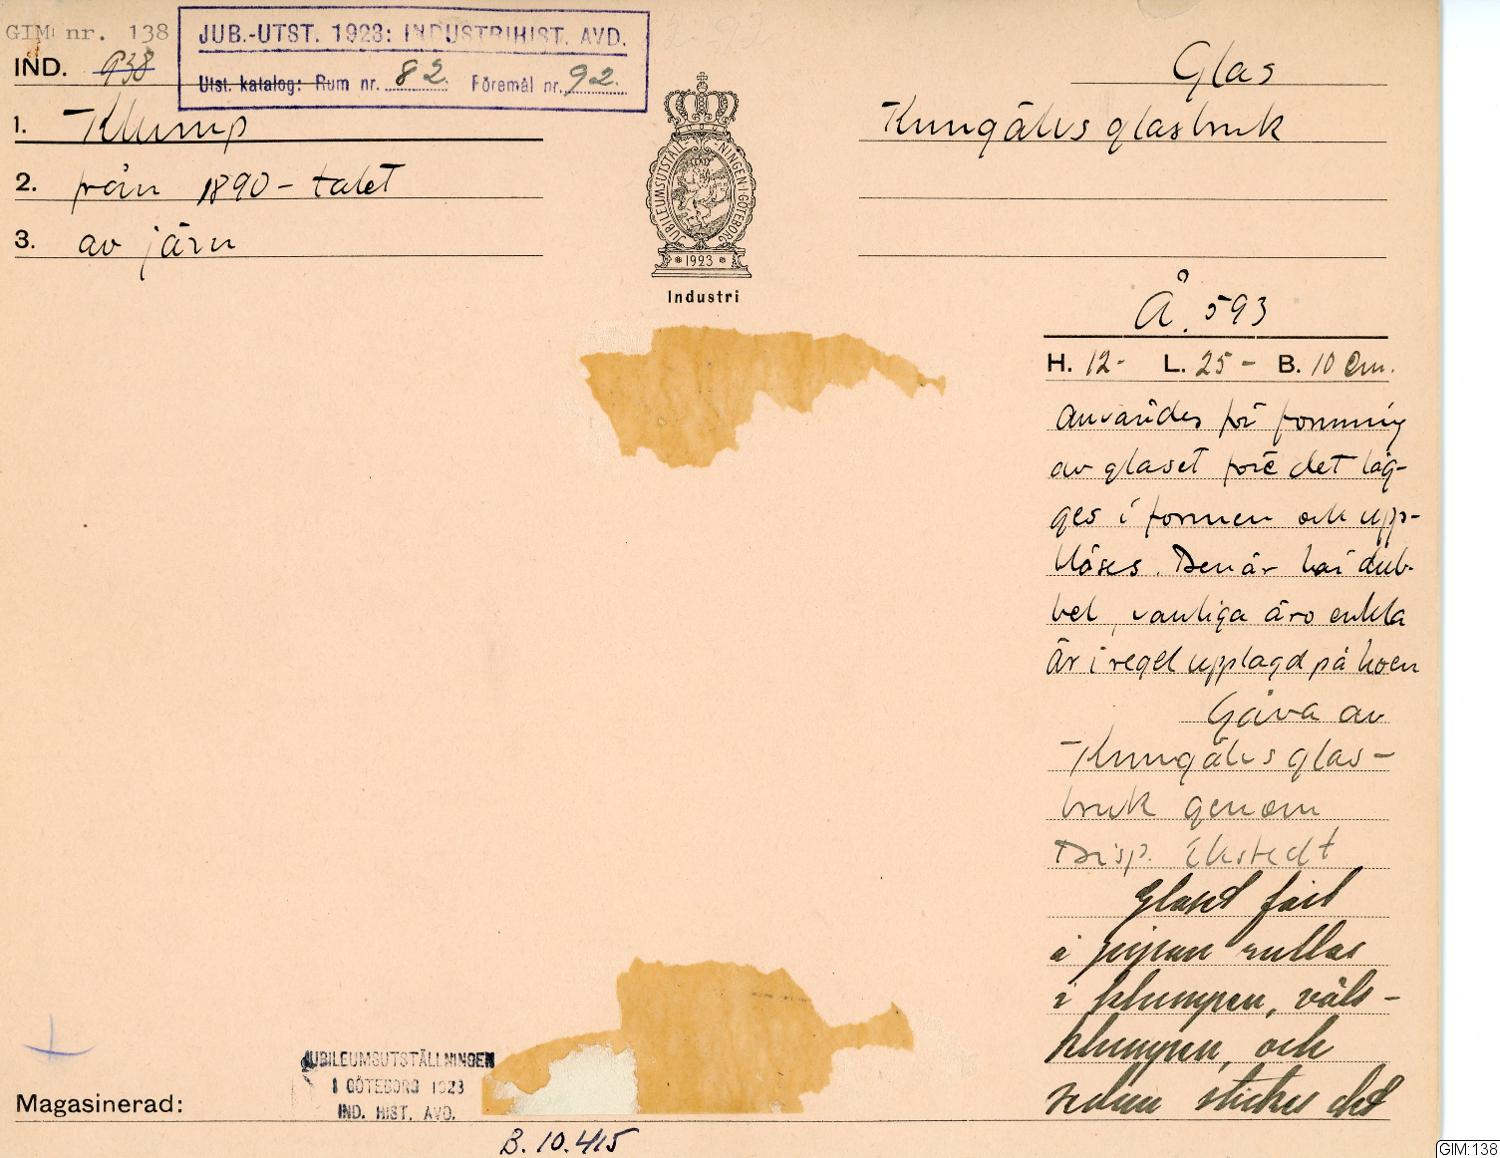 GIM: nr. 138
JUB.-UTST. 1923: INDUSTRIHIST. AVD.
IND. 938
Utst. katalog: Rum nr. 82. Föremål nr. 92.
Glas
1. Klump
Kungälvs glasbruk
2. från 1890-talet
3. av järn
JUBILEUMSUTSTÄLLNINGEN I GÖTEBORG
1923
Industri
Å. 593
H. 12- L. 25- B. 10 cm.
Användes för formning
av glaset före det läg-
ges i formen och upp-
blåses. Den är här dub-
bel, vanliga äro enkla
Är i regel upplagd på hoen
Gåva av
Kungälvs glas-
bruk genom
Disp. Ekstedt
Glaset fäst
å pipan rullas
i klumpen, väls-
klumpen, och
sedan stickes det
JUBILEUMSUTSTÄLLNINGEN
I GÖTEBORG 1923
IND. HIST. AVD.
Magasinerad:
B.10.415
GIM:138